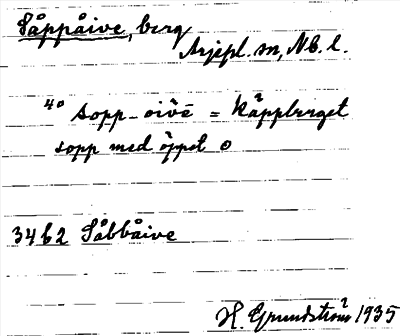 Såppåive, berg
Arjepl. sn, Nb. l.
40 sopp-oivē = Käppberget
sopp med öppet o
3462 Såbbåive
H. Grundström 1935